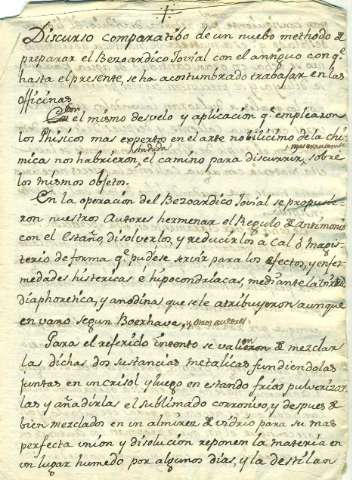 Discurso comparatibo de un nuebo methodo de
preparar el Bezoardico Jovial con el antiguo con q.e
hasta el presente, se ha acostumbrado trabajar en las
officinas.
Con el mismo desvelo y aplicacion q.e emplearon
los Phisicos mas expertos en el arte nobilicimo de la chi-
mica nos habrieron, el camino para discurrir, sobre
los mismos objetos.
En la operacion del Bezoardico Jovial se propusie-
ron nuestros Autores hermenar el Regulo de Antimonio
con el Estaño, disolverlos, y reducirlos à Cal ò Magis-
terio de forma q.e pudese servir para los efectos, y enfer-
medades histericas è hipocondriacas, mediante la
diaphoretica, y anodina que se le atribuyeron aunque
en vano segun Boerhave, y otros autores
Para el referido intento se valieron de mezclar
las dichas dos sustancias metalicas fundiendolas
juntas en un crisol y luego en estando frias pulverizar-
las, y añadirlas el sublimado corrosivo, y despues de
bien mezclados en un almirez de vidrio para su mas
perfecta union y disolucion reponen la materia en
un lugar humedo por algunos dias, y la destilan